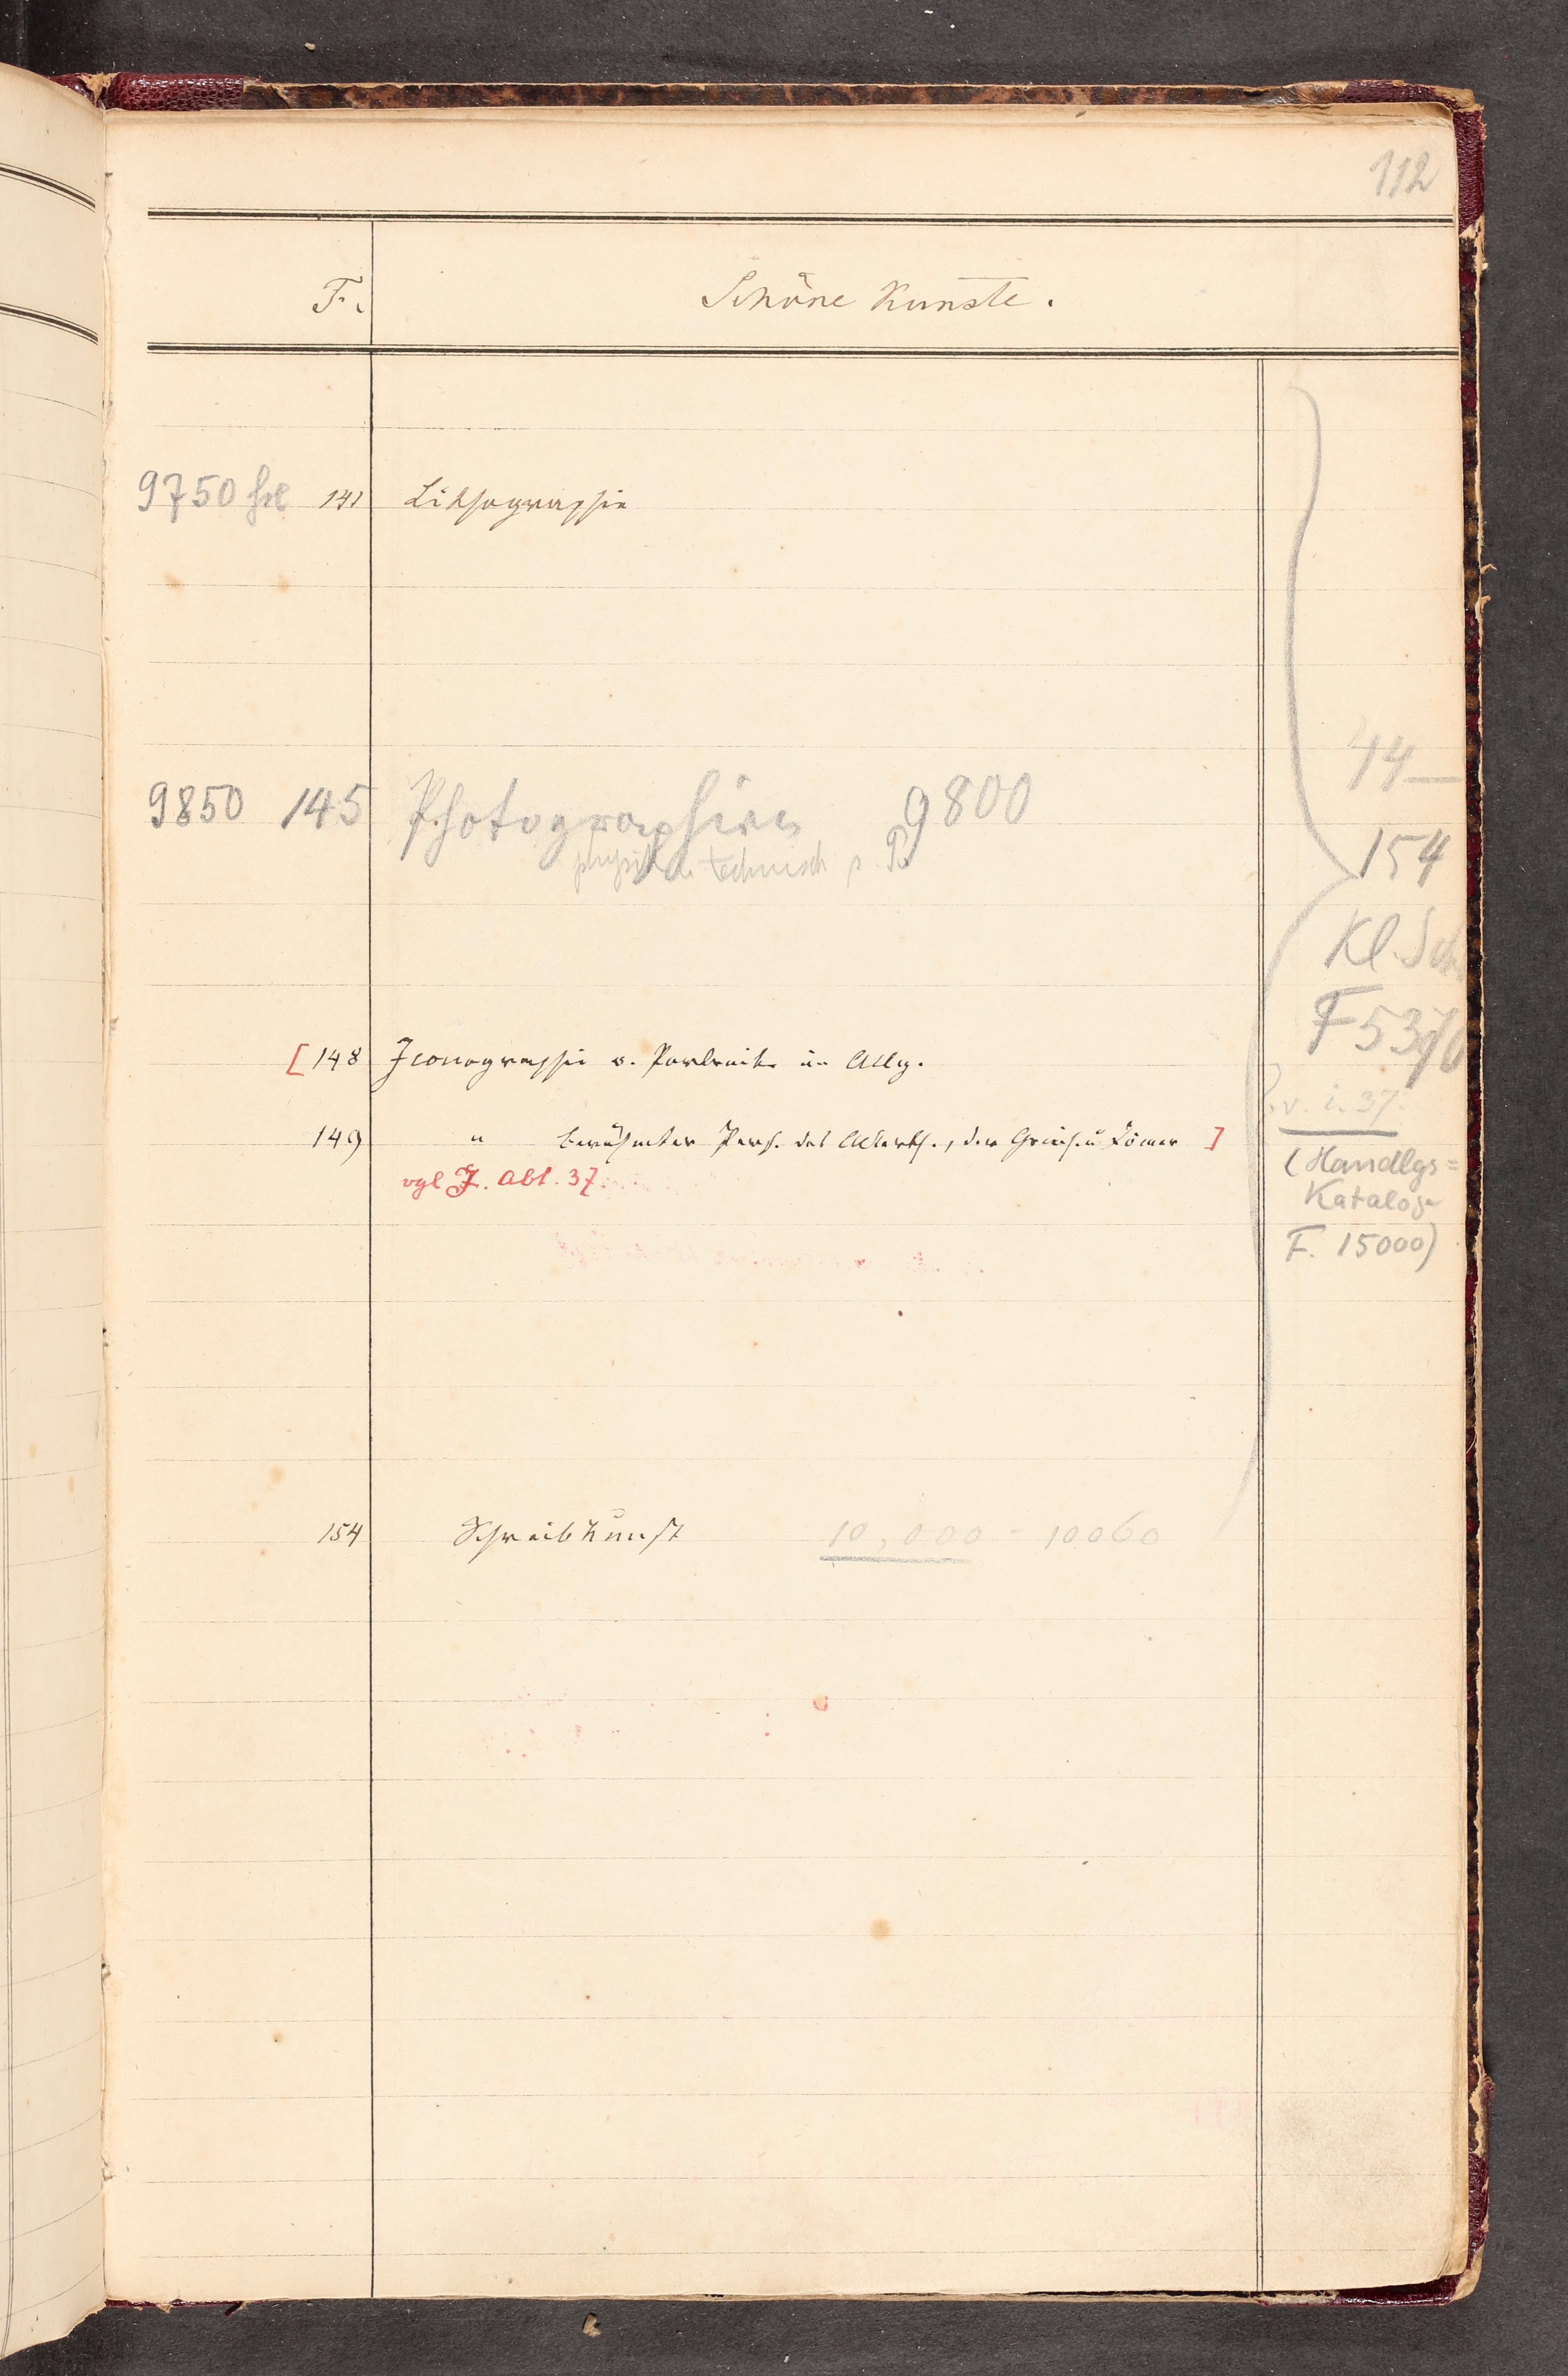 112
F. Schöne Künste.
9750 141 Lithographie
44—
9850 145 Photographieen 9800
physik. u. technisch s. P.
154
Kl. Sch
F 5370
[148 Iconographie o. Portraits im Allg.
v. i. 37.
149 " berühmter Pers. des Alterth., der Griech. u Römer ]
vgl J. Abt. 37.
(Handlgs=
Katalog
F. 15000)
154 Schreibkunst 10,000 - 10060